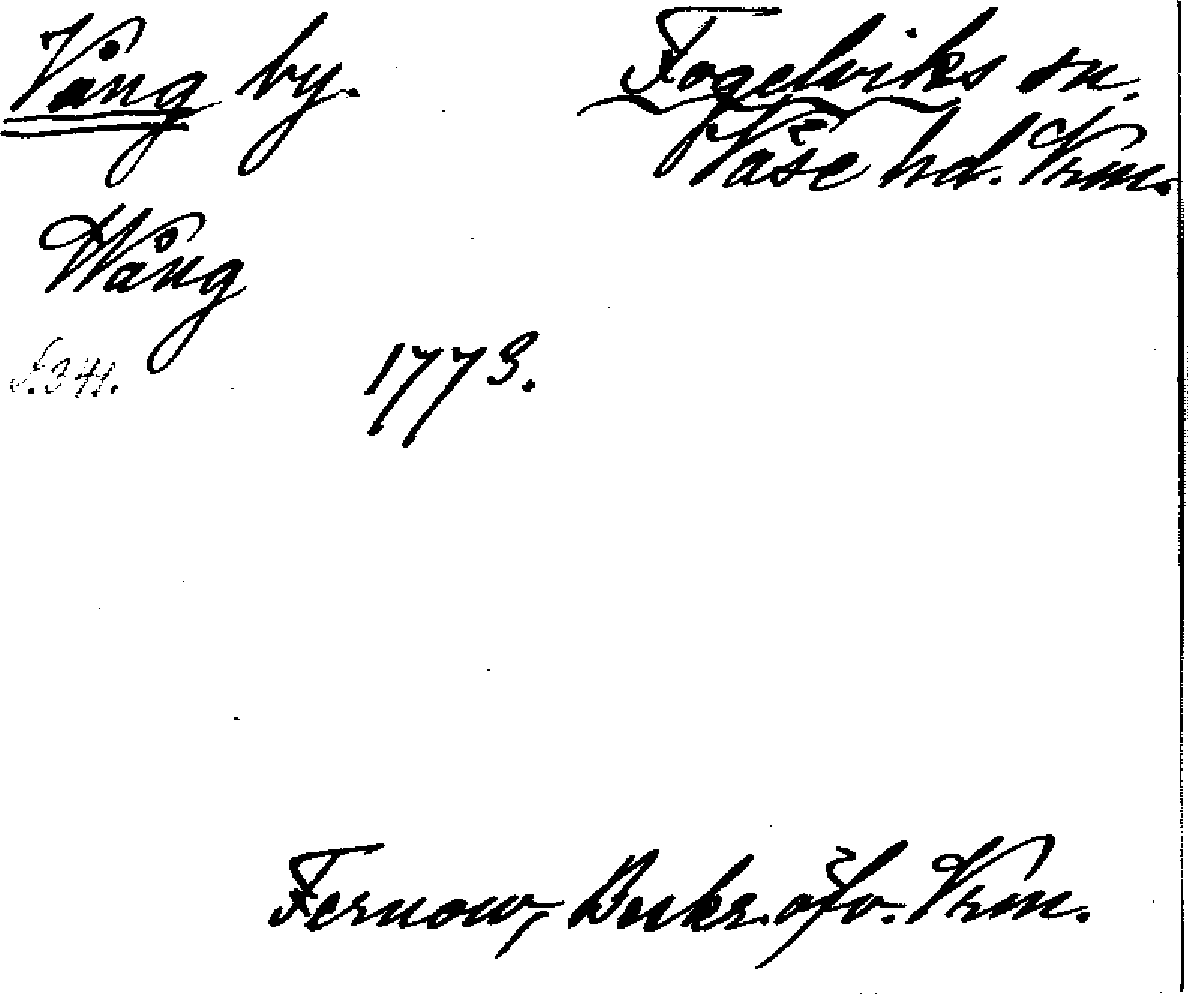 Vång by. Fogelviks sn.
Väse hd. Vrm.
Wång
S. 341. 1773.
Fernow, Beskr. öfv. Vrm.